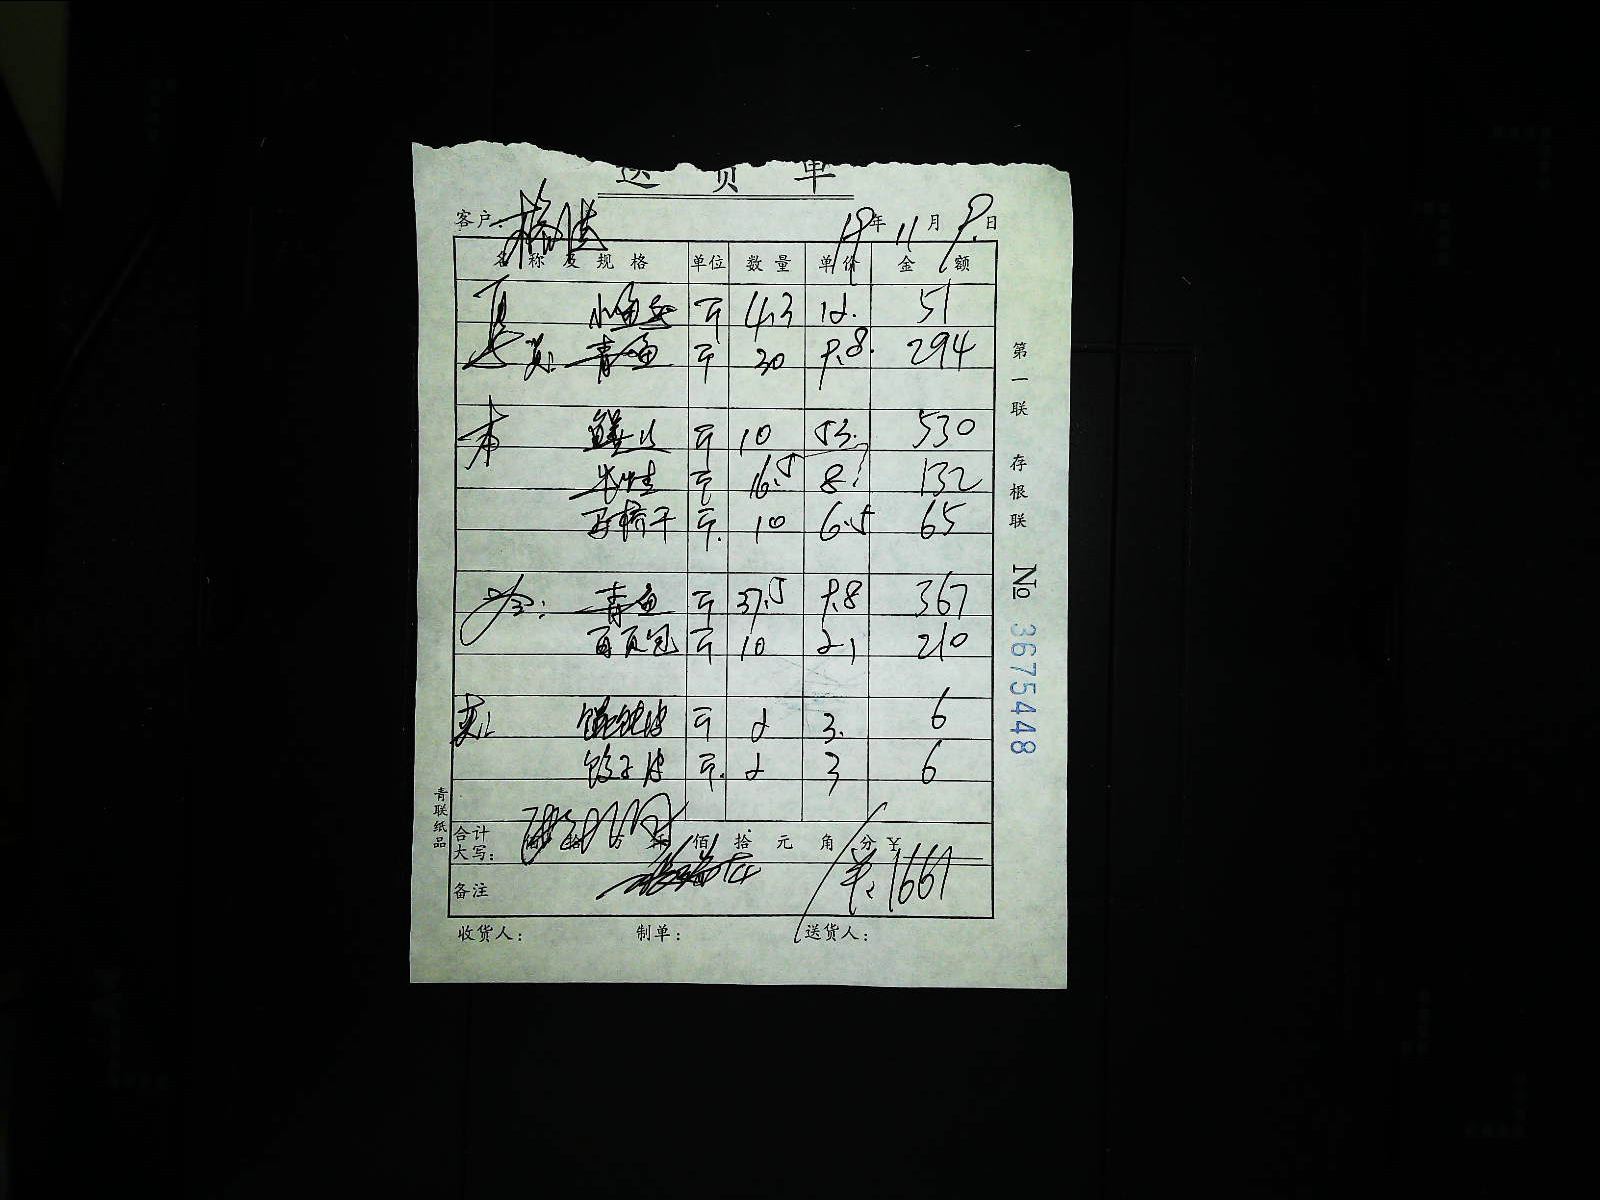 送货单
客户:
19年11月9日
名称及规格 单位 数量 单价 金额
小鱼 斤 4.3 12. 51
青鱼 斤 30 9.8. 294
本 鳝 斤 10 53. 530
牛蛙 斤 16.5 8. 132
干 斤. 10 6.5 65
青鱼 斤 37.5 9.8 367
百页包 斤 10 21 210
馄饨皮 斤 2 3. 6
饺子皮 斤. 2 3 6
合计
大写: 佰 拾 万 仟 佰 拾 元 角 分 ¥
备注 1661
收货人: 制单: 送货人:
第一联 存根联 № 3675448
青联纸品